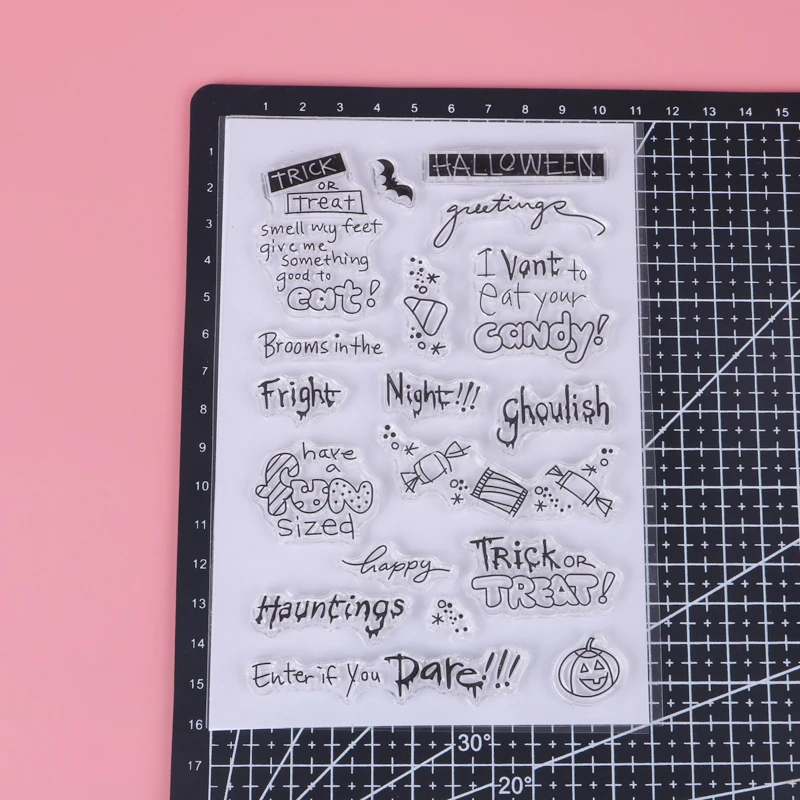 1 2 3 4 5 6 7 8 9 10 11 12 13 14 15
1
2
3
4
5
6
7
8
9
10
11
12
13
14
15
16
17
TRICK
OR
treat
smell my feet
give me
something
good to
eat!
HALLOWEEN
greetings
I Vant to
eat your
candy!
Brooms in the
Fright
Night!!!
Ghoulish
have
a
fun
sized
happy
TRICK OR
TREAT!
Hauntings
Enter if you Dare!!!
30°
20°